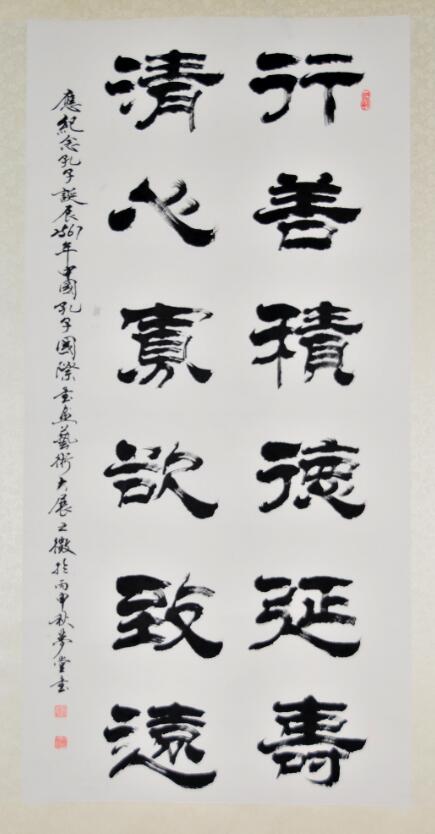 行善積德延壽
清心寡欲致遠
應紀念孔子誕辰2567年中國孔子國際書畫藝術大展之徵於丙申秋夢堂書